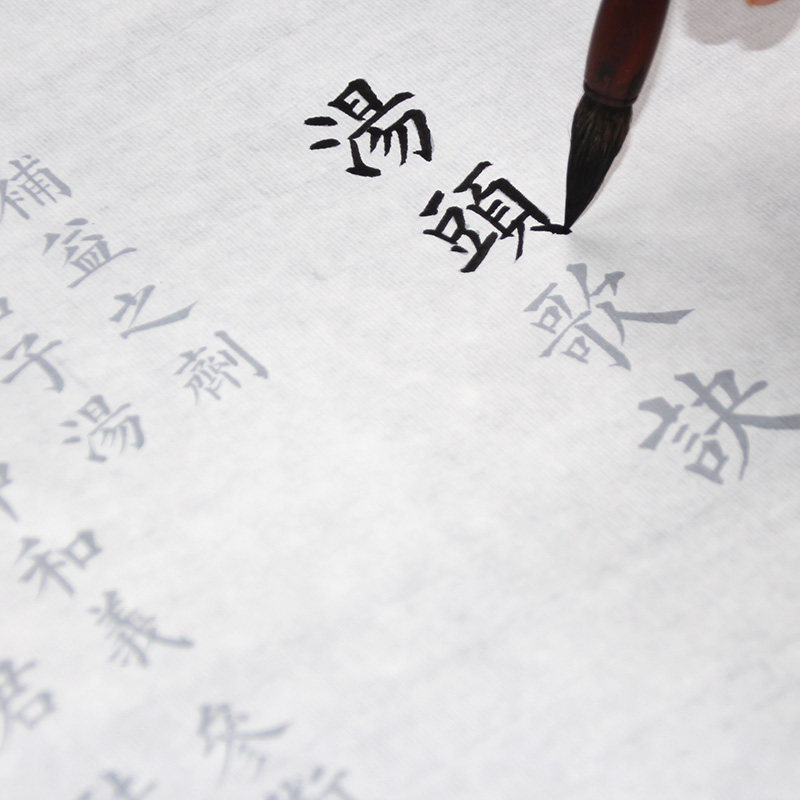 湯頭歌訣
補益之劑
子湯
中和義參
君